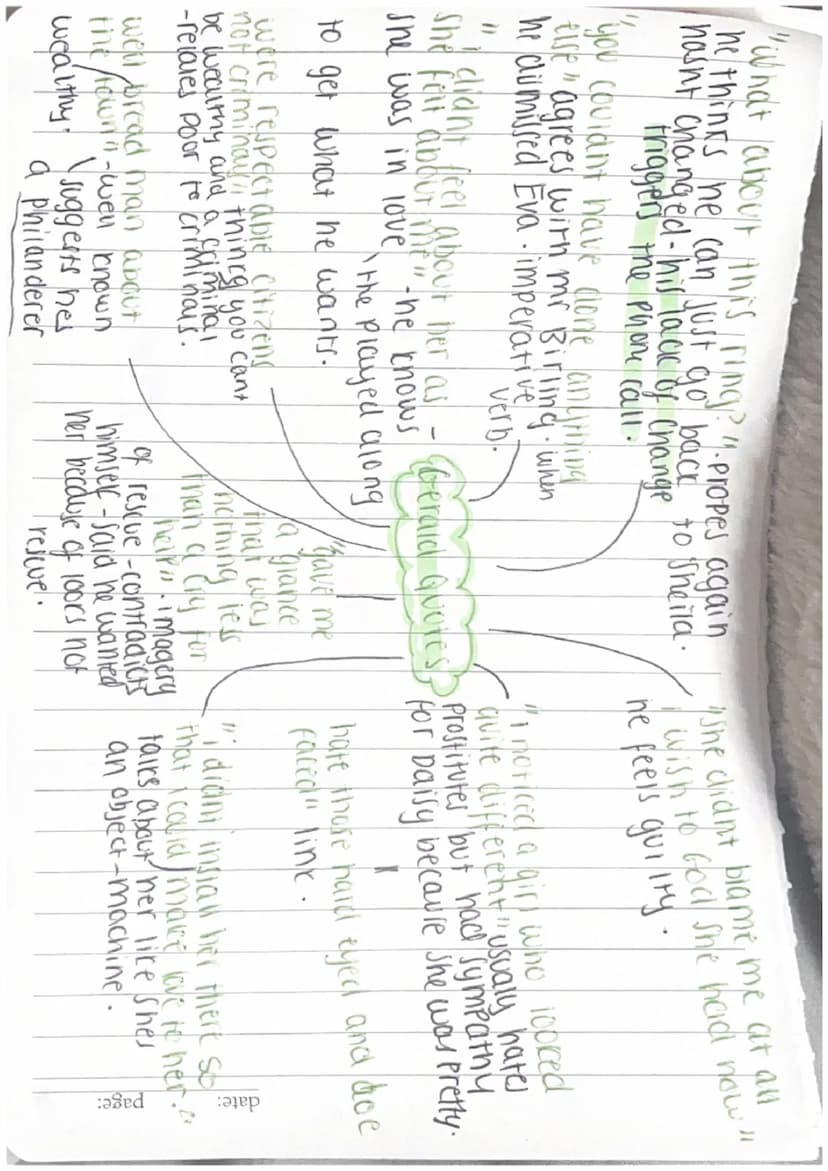 "What about this ring?". propes again
he thinks he can just go back to sheila.
hasnt changed - his lack of change
triggers the phone call.
"you couldnt have done anything
else" agrees with mr Birling. when
he dismissed Eva. imperative
verb.
"i didnt feel about her as -
she felt about me" - he knows
she was in love \ the played along
to get what he wants.
were respectable citizens
not criminals" thinks you cant
be wealthy and a criminal
- relates poor to criminals.
well bread man about
the town" - well known
wealthy. \ suggests hes
a philanderer
Gerald quotes
"gave me
a glance
that was
nothing less
than a cry for
help". imagery
of rescue - contradicts
himself - said he wanted
her because of looks not
rescue.
"she didnt blame me at all
i wish to God she had now"
he feels guilty.
"i noticed a girl who looked
quite different" usually hates
prostitutes but had sympathy
for Daisy because she was pretty.
hate those hard eyed and doe
faced" link.
"i didnt install her there so
that i could make love to her."
talks about her like shes
an object - machine.
date:
page: